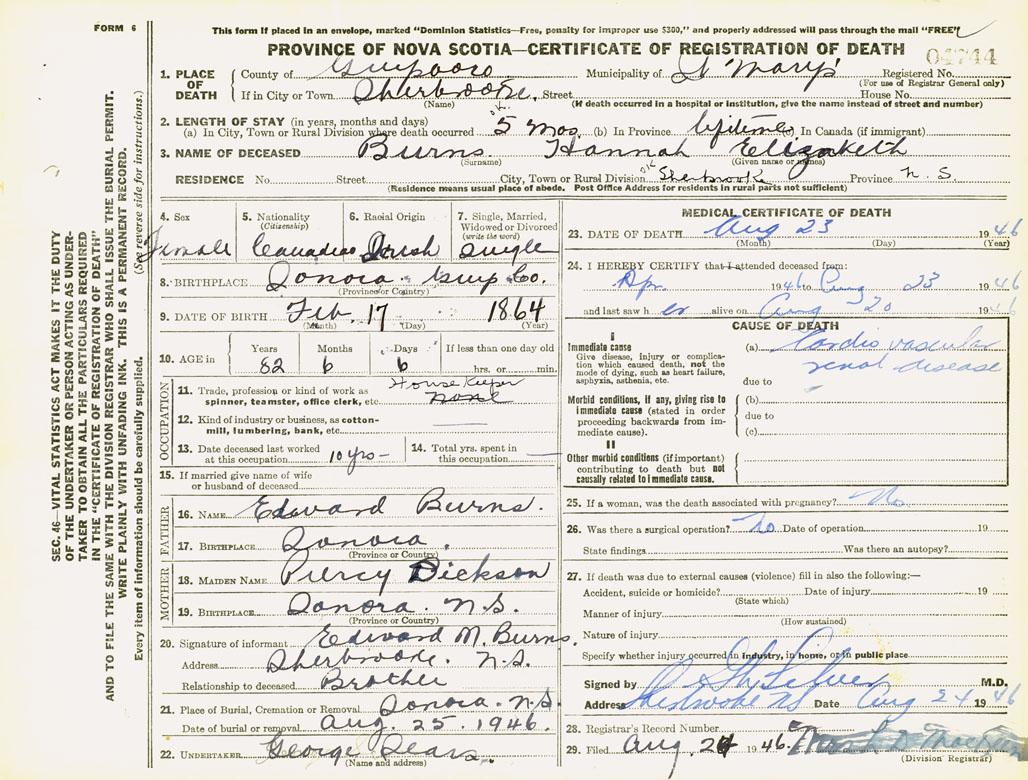 FORM 6
This form if placed in an envelope, marked "Dominion Statistics—Free, penalty for improper use $300," and properly addressed will pass through the mail "FREE"
PROVINCE OF NOVA SCOTIA—CERTIFICATE OF REGISTRATION OF DEATH
04744
1. PLACE OF DEATH
County of Guysboro Municipality of St Mary's Registered No.
(For use of Registrar General only)
If in City or Town Sherbrooke, Street House No.
(Name) (If death occurred in a hospital or institution, give the name instead of street and number)
2. LENGTH OF STAY (in years, months and days)
(a) In City, Town or Rural Division where death occurred 5 mos. (b) In Province Lifetime In Canada (if immigrant)
OK
3. NAME OF DECEASED Burns Hannah Elizabeth
(Surname) (Given name or names)
RESIDENCE No. Street City, Town or Rural Division OK Sherbrooke Province N. S.
(Residence means usual place of abode. Post Office Address for residents in rural parts not sufficient)
4. Sex
Female
5. Nationality
(Citizenship)
Canadian
6. Racial Origin
Irish
7. Single, Married, Widowed or Divorced
(write the word)
Single
8. BIRTHPLACE Sonora Guys Co.
(Province or Country)
9. DATE OF BIRTH Feb. 17 1864
(Month) (Day) (Year)
10. AGE in
Years Months Days If less than one day old
82 6 6 hrs. or min.
OCCUPATION
11. Trade, profession or kind of work as spinner, teamster, office clerk, etc.
House Keeper
none
12. Kind of industry or business, as cotton-mill, lumbering, bank, etc.
13. Date deceased last worked at this occupation 10 yrs —
14. Total yrs. spent in this occupation —
15. If married give name of wife or husband of deceased
FATHER
16. NAME Edward Burns.
17. BIRTHPLACE Sonora.
(Province or Country)
MOTHER
18. MAIDEN NAME Piercy Dickson
19. BIRTHPLACE Sonora. N.S.
(Province or Country)
20. Signature of informant Edward M. Burns.
Address Sherbrooke. N.S.
Relationship to deceased Brother
21. Place of Burial, Cremation or Removal Sonora. N.S.
Date of burial or removal Aug. 25. 1946.
22. UNDERTAKER George Sears.
(Name and address)
MEDICAL CERTIFICATE OF DEATH
23. DATE OF DEATH Aug 23 1946
(Month) (Day) (Year)
24. I HEREBY CERTIFY that I attended deceased from:
Apr. 1946 to Aug 23 1946
and last saw her alive on Aug 20 1946
CAUSE OF DEATH
I
Immediate cause
Give disease, injury or complication which caused death, not the mode of dying, such as heart failure, asphyxia, asthenia, etc.
(a) Cardio vascular
renal disease
due to
Morbid conditions, if any, giving rise to immediate cause (stated in order proceeding backwards from immediate cause).
(b)
due to
(c)
II
Other morbid conditions (if important) contributing to death but not causally related to immediate cause.
25. If a woman, was the death associated with pregnancy? No
26. Was there a surgical operation? No Date of operation 19
State findings Was there an autopsy?
27. If death was due to external causes (violence) fill in also the following:—
Accident, suicide or homicide? Date of injury 19
(State which)
Manner of injury
(How sustained)
Nature of injury
Specify whether injury occurred in industry, in home, or in public place
Signed by Silver M.D.
Address Sherbrooke NS Date Aug 24 1946
28. Registrar's Record Number
29. Filed Aug. 24 1946.
(Division Registrar)
SEC. 46—VITAL STATISTICS ACT MAKES IT THE DUTY
OF THE UNDERTAKER OR PERSON ACTING AS UNDER-
TAKER TO OBTAIN ALL THE PARTICULARS REQUIRED
IN THE "CERTIFICATE OF REGISTRATION OF DEATH"
AND TO FILE THE SAME WITH THE DIVISION REGISTRAR WHO SHALL ISSUE THE BURIAL PERMIT.
WRITE PLAINLY WITH UNFADING INK. THIS IS A PERMANENT RECORD.
Every item of information should be carefully supplied. (See reverse side for instructions.)